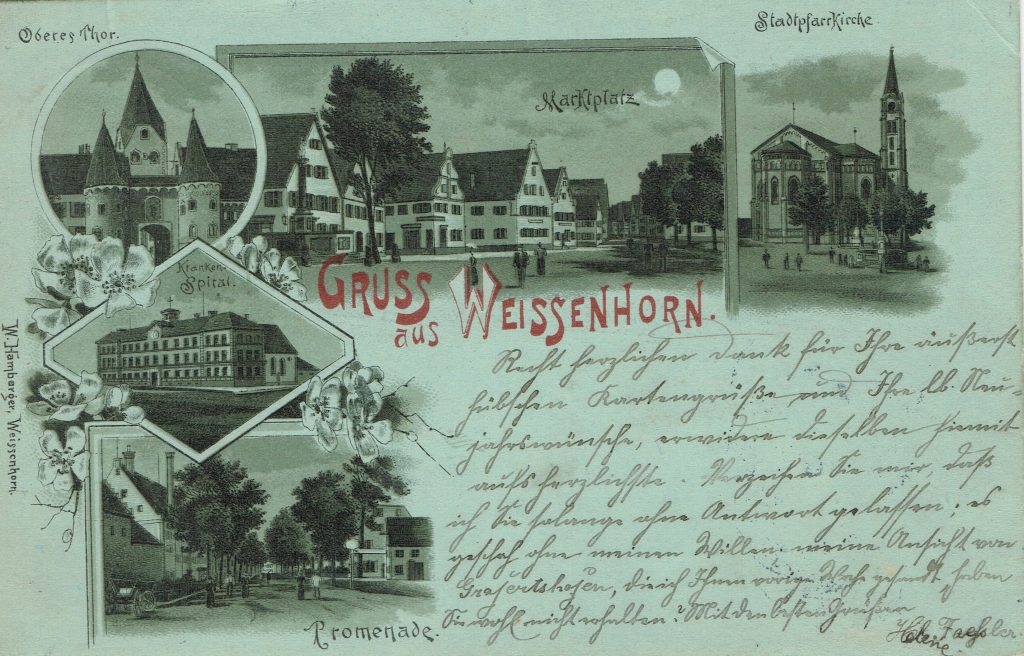 Oberes Thor.
Stadtpfarrkirche.
Marktplatz
Kranken-
Spital.
GRUSS
aus WEISSENHORN.
W. Hamberger, Weissenhorn.
Promenade.
Recht herzlichen Dank für Ihre äußerst
hübschen Kartengrüße und Ihre lb. Neu-
jahrswünsche, erwidere dieselben hiemit
aufs herzlichste. Verzeihen Sie mir, daß
ich Sie solange ohne Antwort gelassen; es
geschah ohne meinen Willen, meine Ansicht von
Grafertshofen, die ich Ihnen vorige Woche gesandt, haben
Sie wohl nicht erhalten? Mit den besten Grüßen
Helene Faessler.